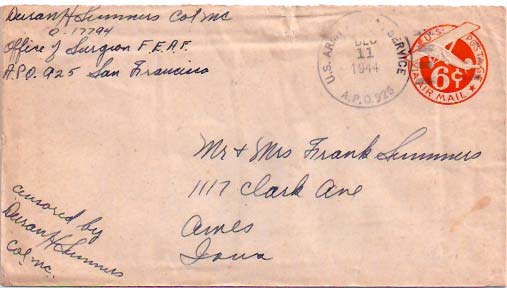 Duran H Summers Col MC
O-17794
Office of Surgeon F.E.A.F.
A.P.O. 925 San Francisco
U.S. ARMY SERVICE
DEC
11
1944
A.P.O. 925
U.S. POSTAGE
6¢
VIA AIR MAIL
Mr & Mrs Frank Summers
1117 Clark Ave
Ames
Iowa
censored by
Duran H Summers
Col MC.